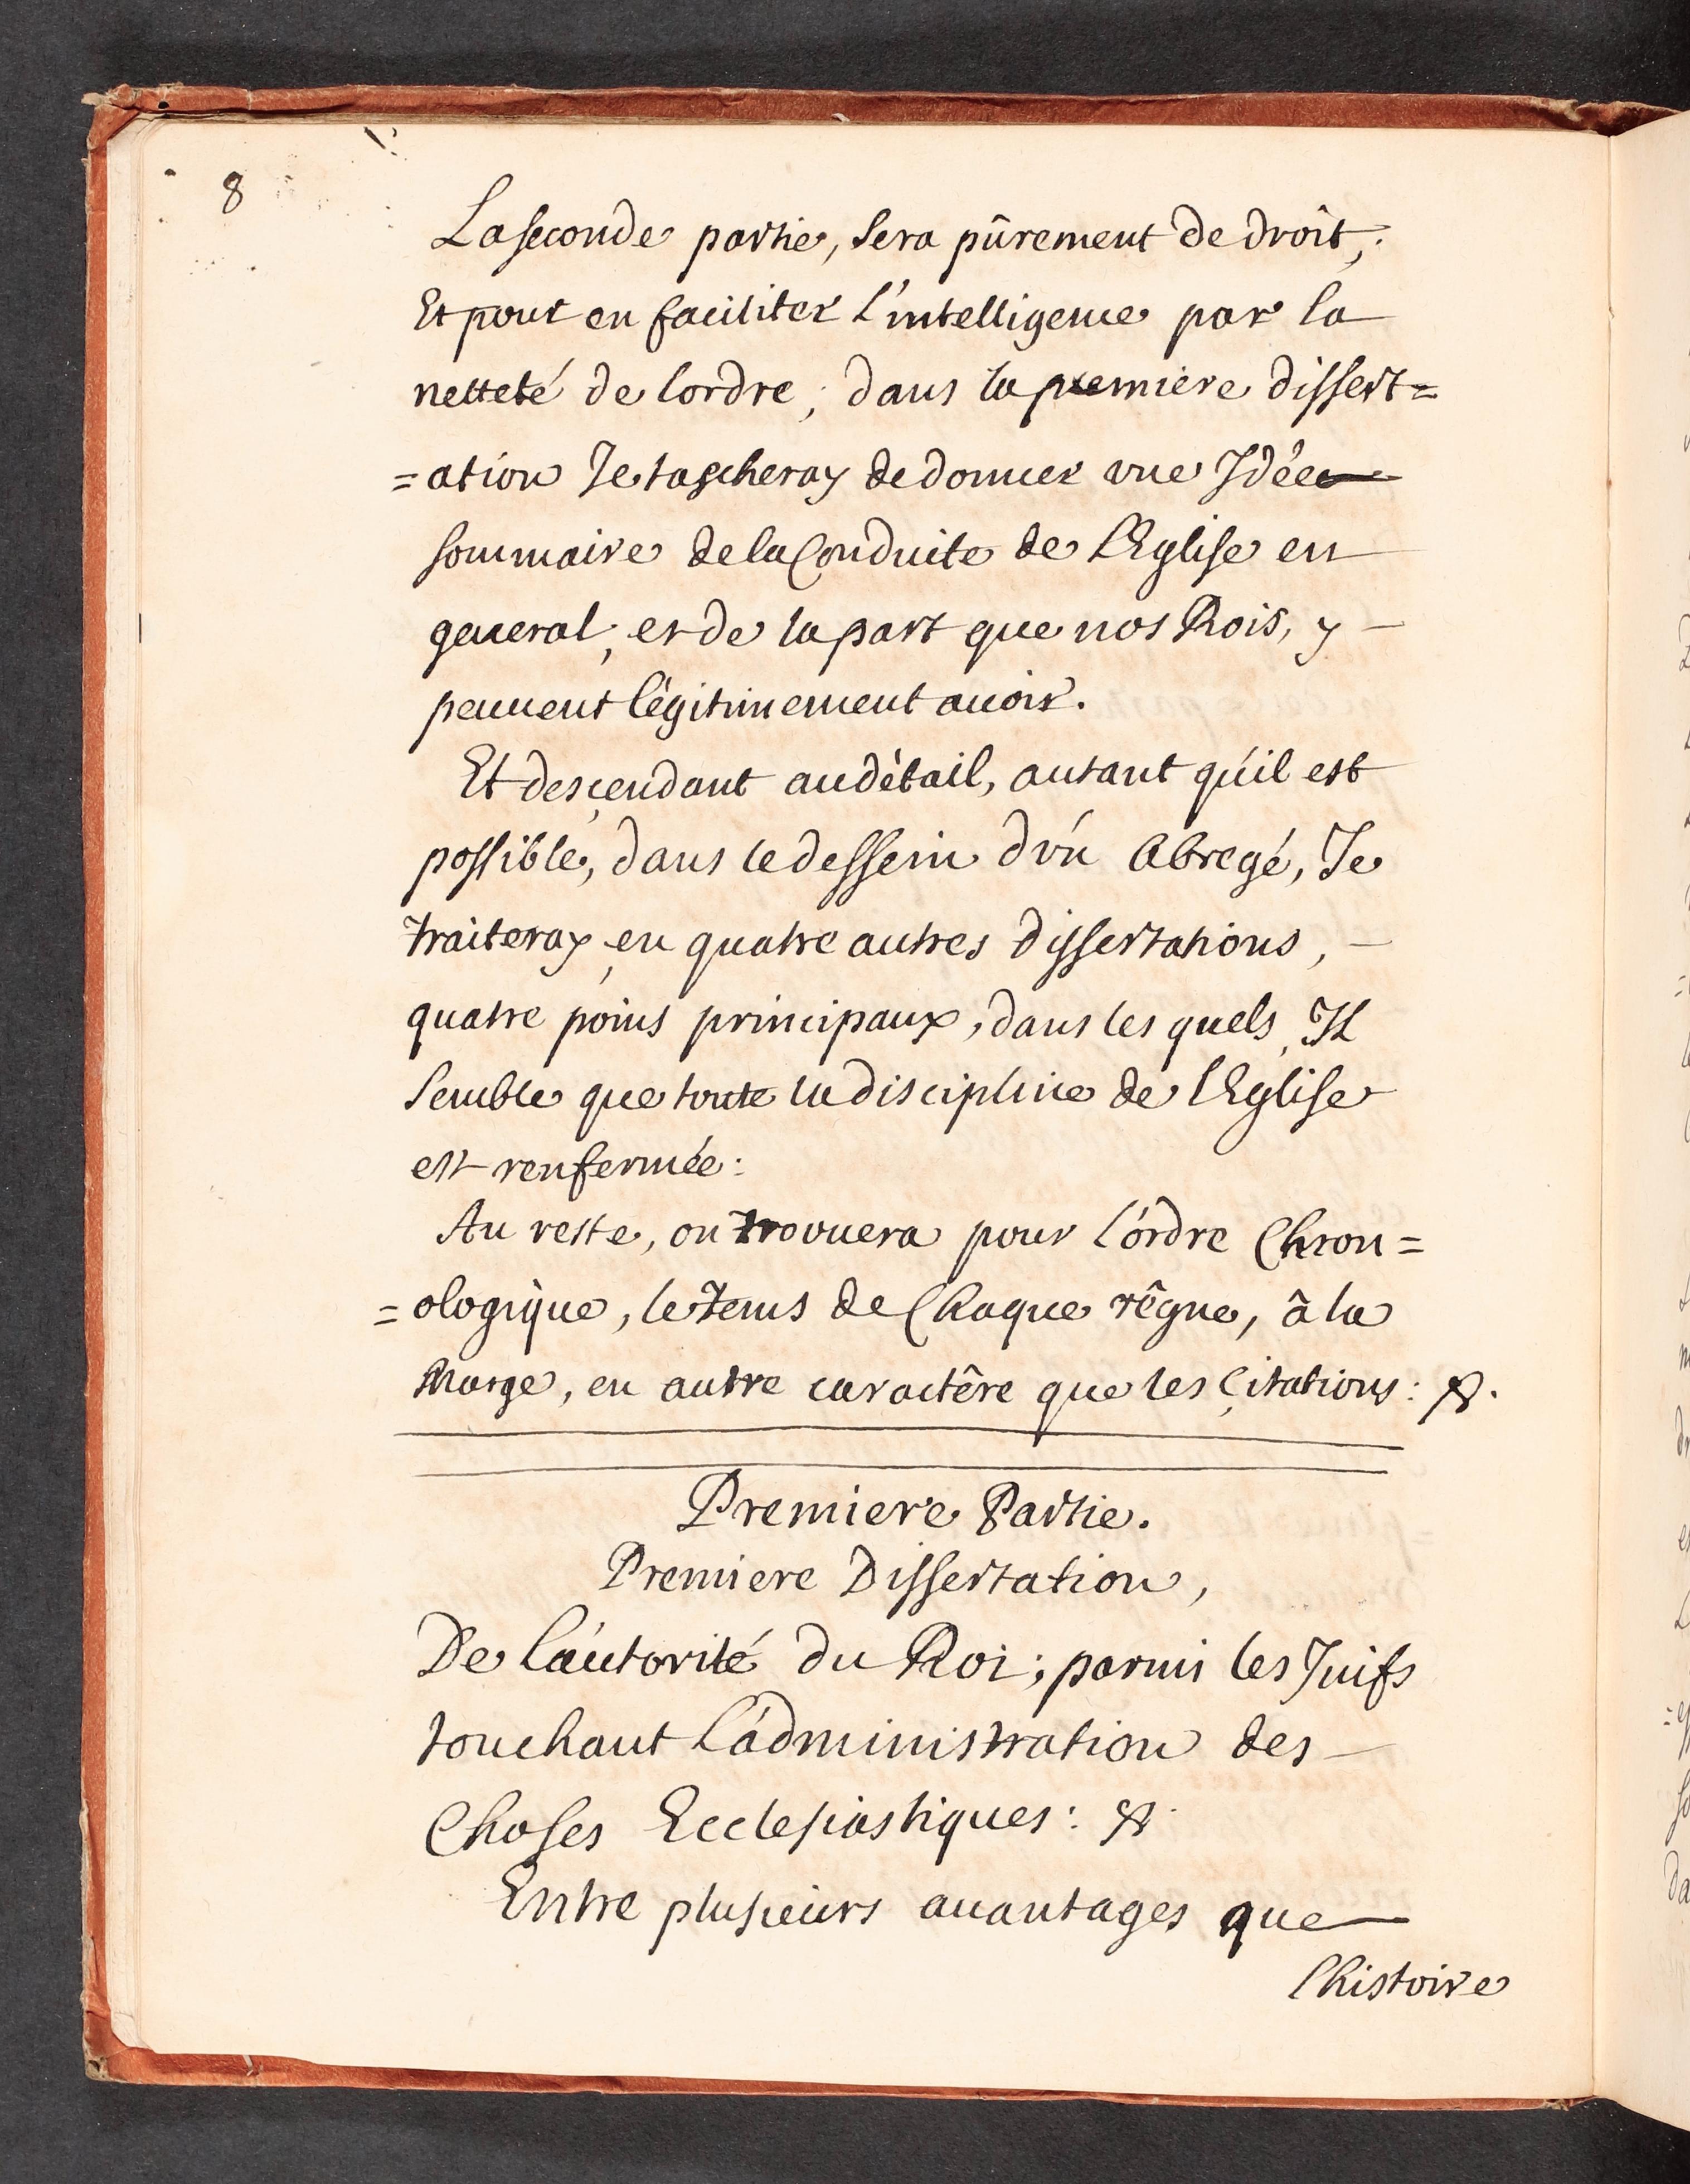 8
La seconde partie, sera pûrement de droit;
Et pour en faciliter l'intelligence par la
netteté de lordre; dans la premiere dissert=
=ation Je tascheray de donner vne Idée
sommaire de la Conduite de l'Eglise en
general; et de la part que nos Rois, y
peuuent légitimement auoir.
Et descendant au détail, autant qu'il est
possible, dans le dessein d'vn Abregé, Je
traiteray en quatre autres dissertations,
quatre poins principaux, dans les quels, Il
semble que toute la discipline de l'Eglise
est renfermée:
Au reste, on trouuera pour l'ordre Chron=
=ologique, le tems de Chaque rêgne, â la
Marge, en autre caractêre que les Citations: &.
Premiere Partie.
Premiere Dissertation,
De l'autorité du Roi; parmi les Juifs
touchant l'administration des
Choses Ecclesiastiques: &.
Entre plusieurs auantages que
l'histoire